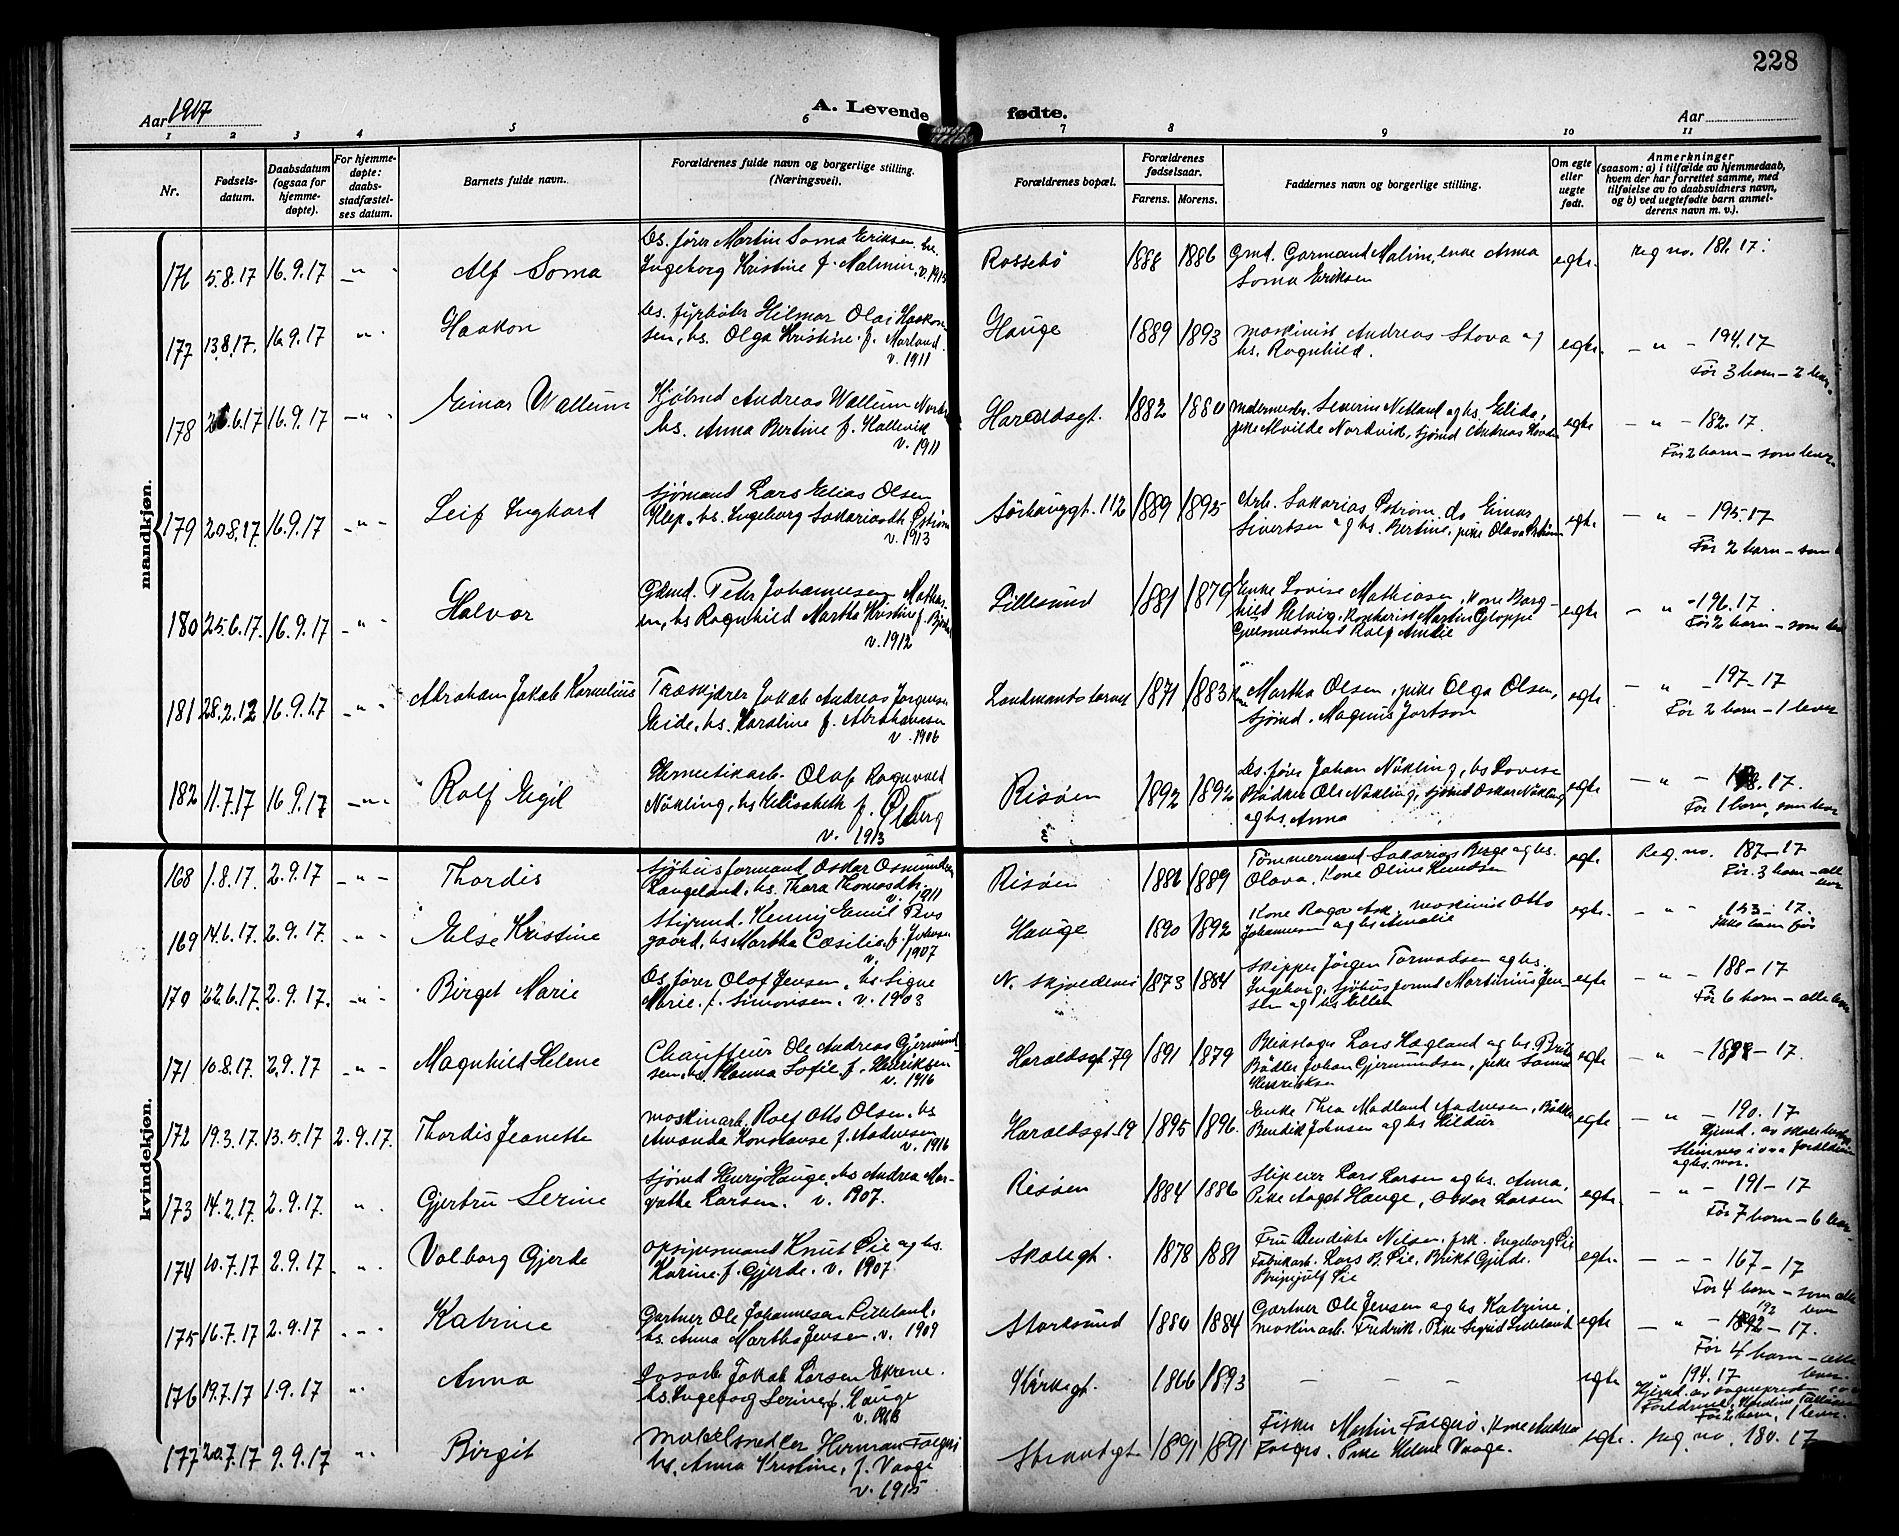 228
Aar 1917
A. Levende fødte.
Aar
1 2 3 4 5 6 7 8 9 10 11
Nr.
Fødsels-
datum.
Daabsdatum
(ogsaa for
hjemme-
døpte).
For hjemme-
døpte:
daabs-
stadfæstel-
ses datum.
Barnets fulde navn.
Forældrenes fulde navn og borgerlige stilling.
(Næringsvei).
Forældrenes bopæl.
Forældrenes
fødselsaar.
Farens. Morens.
Faddernes navn og borgerlige stilling.
Om egte
eller
uegte
født.
Anmerkninger
(saasom: a) i tilfælde av hjemmedaab,
hvem der har forrettet samme, med
tilføielse av to daabsvidners navn,
og b) ved uegtefødte barn anmel-
derens navn m. v.).
mandkjøn.
176 5.8.17 16.9.17 Alf Soma
Ds. fører Martin Soma Eriksen, hs.
Ingeborg Kristine f. Malmin, v. 1915
Rossebø 1888 1886
Gmd. Gormand Malmin, enke Anna
Soma Eriksen
egte. reg no. 181.17.
177 13.8.17. 16.9.17 Haakon
Ds. fyrbøter Hilmar Olai Haakon
sen, hs. Olga Kristine f. Norland.
v. 1911
Hauge 1889 1893
maskinist Andreas Stova og
hs. Ragnhild.
egte. — " — 194.17
Før 3 barn – 2 lever
178 6.17 16.9.17 Einar Wallum
Kjøbmd Andreas Wallum
hs. Anna Bertine f. Hallevik
v. 1911
Haraldsgt. 1882 1880
Severin Netland og hs. Elida,
pike Alvilde Nordvik, sjømd Andreas
egte — " — 182.17.
Før 2 barn – som lever
179 20.8.17. 16.9.17 Leif Inghard
Sjømand Lars Elias Olsen
Klep, hs. Ingeborg Sakariasdt. Østrem
v. 1913
Sørhauggt. 112 1889 1895
Arb. Sakarias Østrem, do Einar
Sivertsen og hs. Bertine, pike Olava Østrem
egte. — " — 195.17
Før 2 barn – som
180 25.6.17. 16.9.17 Halvor
Gdmd. Peter Johannesen Mathias-
en, hs Ragnhild Martha Kristine f.
v. 1912
Lillesund 1881 1879
Enke Lovise Mathiasen, kone Borg-
hild Helvig, Martin Gloppe
Gulsmedsvend Rolf Amlie
egte — " – 196.17.
Før 2 barn – som
181 28.2.12 16.9.17 Abraham Jakob Kornelius
Træskjærer Jakob Andreas Jørgensen
Eide, hs. Karoline f. Abrahamsen
v. 1906
1871 1883
Martha Olsen, pike Olga Olsen,
sjømd. Magnus Jortson
egte — " — 197–17
Før 2 barn – 1 lever
182 11.7.17 16.9.17 Rolf Eigil
Hermetikarb. Olaf Ragnvald
Nökling, hs Elisabeth f.
v. 1913
Risøen 1892 1892
Ds. fører Johan Nökling, hs Lovise
Bødker Ole Nökling, sjømd Oskar Nökling
og hs. Anna
egte — " — 198.17.
Før 1 barn, som lever
kvindekjøn.
168 1.8.17. 2.9.17 Thordis
Sjøhusformand Oskar Osmundsen
Haugeland, hs. Thora Thomasdt.
v. 1911
Risøen 1886 1889
Tømmermand Sakarias Berge og hs.
Olava, Kone Oline Knudsen
egte. Reg. no. 187–17
Før 3 barn – alle
lever
169 14.6.17. 2.9.17. Else Kristine
Stigmd. Henny Emil
gaard, hs Martha Cæsilie f.
v. 1907
Hauge 1890 1892
Kone Ragna Ask, maskinist Otto
Johannesen og hs Amalie
egte. — " — 153–17.
Ikke barn før
170 22.6.17. 2.9.17. Birget Marie
Ds. fører Olaf Jensen, hs Signe
Marie f. Simonsen. v. 1903
N. Skjoldevei 1873 1884
Skipper Jørgen Tormodsen og hs.
Ingeborg, sjøhusformd Martinius Jen-
sen og hs Ellen
egte — " — 188–17
Før 6 barn – alle lever
171 10.8.17. 2.9.17 Magnhild Helene
Chauffeur Ole Andreas Gjermund-
sen, hs. Hanna Sofie f. Henriksen
v. 1916
Haraldsgt. 79 1891 1879
Lars Hagland og hs. Brita
Bødker Johan Gjermundsen, pike Sanna
Henriksen
egte — " — –17.
172 19.3.17 13.5.17 2.9.17. Thordis Jeanette
Maskinarb. Rolf Otto Olsen, hs
Amanda Konstanse f. Aadnesen
v. 1916
Haraldsgt. 19 1895 1896
Enke Thea Madland Aadnesen, Bødker
Bendik Johnsen og hs Hildur
egte — " — 190.17
Hjemd. av
173 14.2.17. 2.9.17. Gjertru Serine
Sjømd Henrij Hauge, hs Andrea Mar-
gathe Larsen. v. 1907.
Risøen 1884 1886
Slip eier Lars Larsen og hs. Anna,
Pike Aaget Hauge, Oskar Larsen
egte. — " — 191–17
Før 7 barn – 6 lever
174 10.7.17 2.9.17. Valborg Gjerde
Opsynsmand Knut Lie og hs.
Karine f. Gjerde. v. 1907.
Skolegt. 1878 1881
Fru Bendikte Nilsen, frk. Ingeborg Lie
Fabrikarb. Lars B. Lie, Brikt Gjerde.
Brynjulf Lie
egte. — — 167–17
Før 4 barn – som alle
lever
175 16.7.17 2.9.17. Katrine
Gartner Ole Johannesen Lilleland,
hs. Anna Martha Jensen. v. 1909
Storesund 1880 1884
Gartner Ole Jensen og hs Katrine,
maskinarb. Fredrik, Pike Sigrid Lilleland
egte — " — 192–17.
Før 4 barn – alle
lever.
176 19.7.17 1.9.17 Anna
Jakob Larsen Ekrene.
hs. Ingeborg Serine f. Hauge
Kirkegt. 1866 1893
— — —
egte " 194.17
Hjemd. av sogneprest
Før 2 barn, 1 lever.
177 20.7.17 9.9.17 Birgit
Møbelsnedker Herman Falgerø
hs. Anna Kristine, f. Vaage
v. 1915
Strandgt 1891 1891
Fisker Martin Falgerø, Kone Andrea
Falgerø, Pike Helene Vaage.
egte. reg. no. 180.17